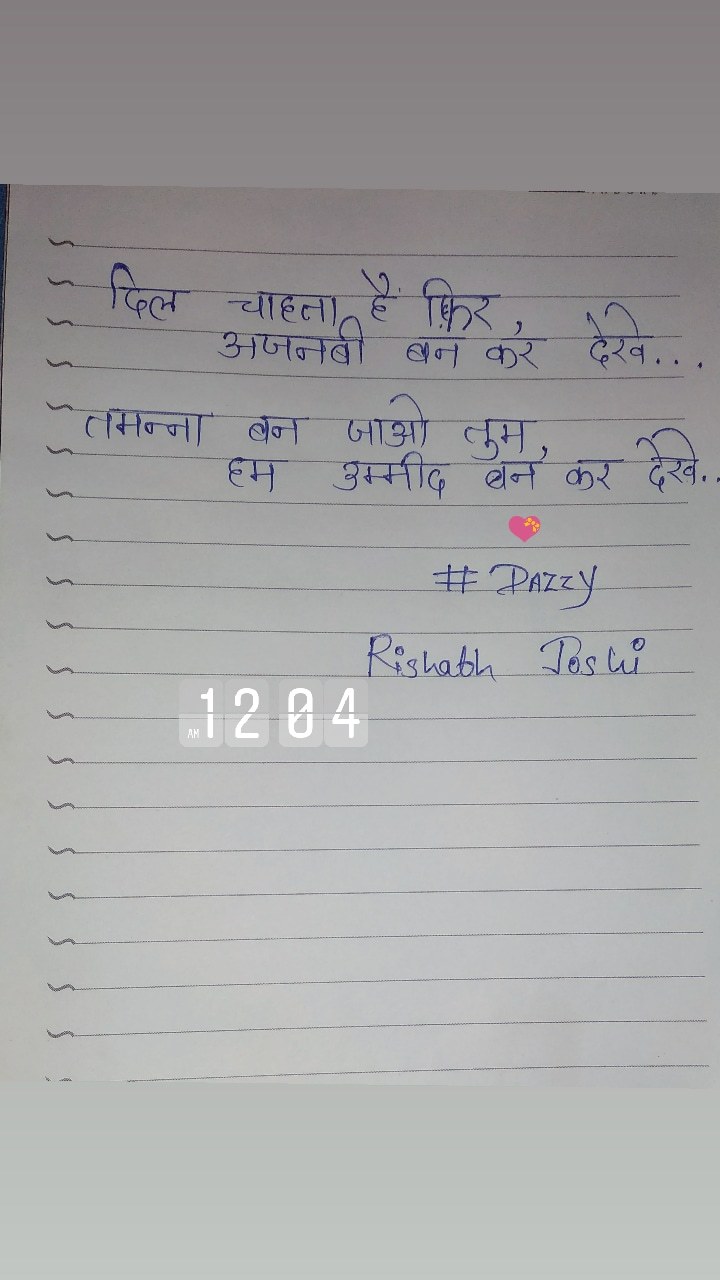 दिल चाहता हैं फ़िर,
अजनबी बन कर देखे...
तमन्ना बन जाओ तुम,
हम उम्मीद बन कर देखे..
# DAZZY
Rishabh Joshi
AM 12 04